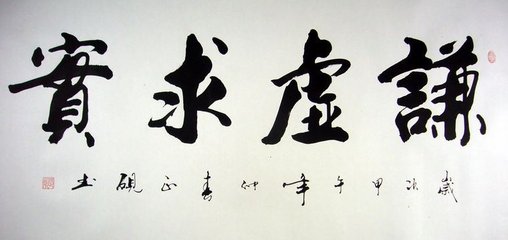 謙虛求實
歲次甲午年仲春正硯